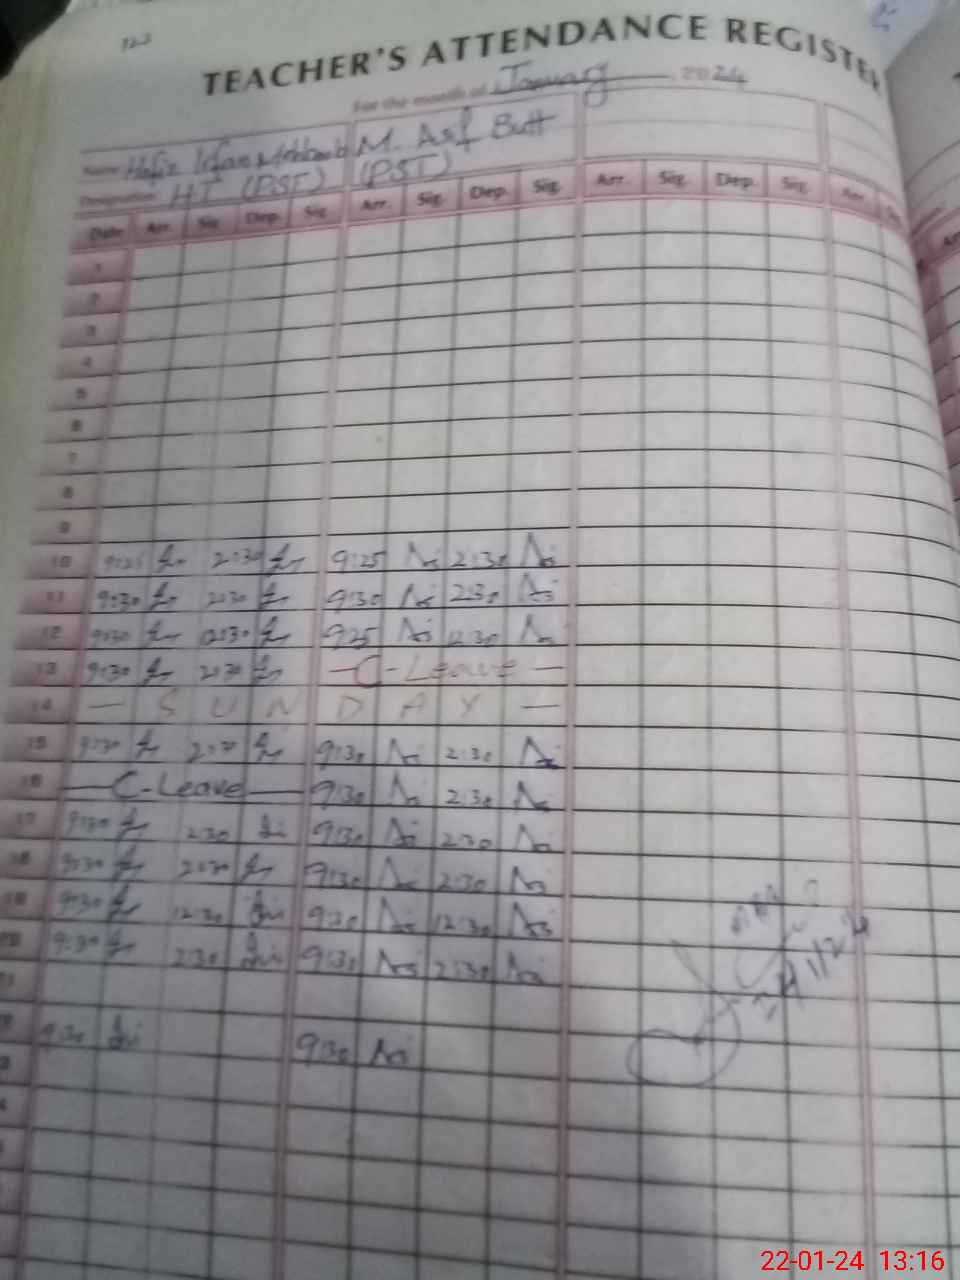 123
TEACHER'S ATTENDANCE REGISTER
For the month of January, 2024
Name Hafiz Irfan M. Asif Butt
Designation HT (PST) (PST)
Date Arr. Sig. Dep. Sig. Arr. Sig. Dep. Sig. Arr. Sig. Dep. Sig. Arr.
1
2
3
4
5
6
7
8
9
10 9:25 2:30 9:25 2:30
11 9:30 2:30 9:30 2:30
12 9:30 12:30 9:25 12:30
13 9:30 2:30 — C-Leave —
14 — S U N D A Y —
15 9:30 2:30 9:30 2:30
16 — C-Leave — 9:30 2:30
17 9:30 2:30 9:30 2:30
18 9:30 2:30 9:30 2:30
19 9:30 12:30 9:30 12:30
20 9:30 2:30 9:30 2:30
9:30 9:30
22-01-24 13:16